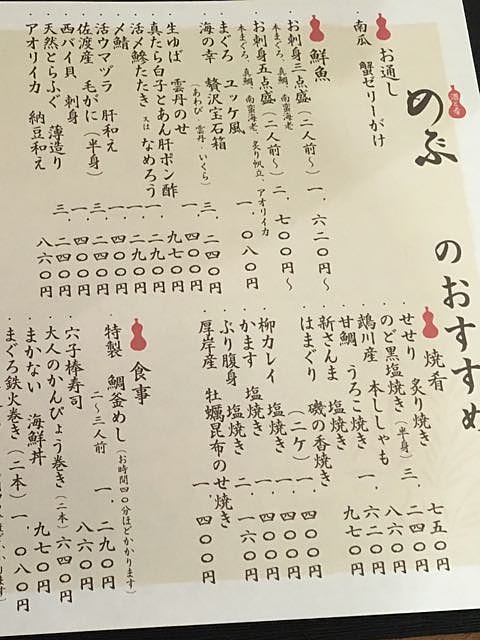 酒と肴
めぶ のおすすめ
お通し
・南瓜 蟹ゼリーがけ
鮮魚
・お刺身三点盛(二人前〜) 一、六二〇円〜
本まぐろ、真鯛、南蛮海老
・お刺身五点盛(二人前〜) 二、七〇〇円〜
本まぐろ、真鯛、南蛮海老、炙り帆立、アオリイカ
・まぐろ ユッケ風 一、〇八〇円
・海の幸 贅沢宝石箱 三、二四〇円
(あわび、雲丹、いくら)
・生ゆば 雲丹のせ 一、四〇〇円
・真たら白子とあん肝ポン酢 九七〇円
・活〆鯵たたき 又は なめろう 一、二九〇円
・〆鯖 一、四〇〇円
・活ウマヅラ 肝和え 一、四〇〇円
・佐渡産 毛がに(半身) 三、二四〇円
・西バイ貝 刺身 一、四〇〇円
・天然とらふぐ 薄造り 三、二四〇円
・アオリイカ 納豆和え 八六〇円
焼肴
・せせり 炙り焼き 七五〇円
・のど黒塩焼き(半身) 三、二四〇円
・鵡川産 本ししゃも 八六〇円
・甘鯛 うろこ焼き 一、六二〇円
・新さんま 塩焼き 九七〇円
・はまぐり 磯の香焼き
(二ケ) 一、四〇〇円
・柳カレイ 塩焼き 一、四〇〇円
・かます 塩焼き 一、四〇〇円
・ぶり腹身 塩焼き 二、一六〇円
・厚岸産 牡蠣昆布のせ焼き 一、四〇〇円
食事
・特製 鯛釜めし(お時間四〇分ほどかかります)
二〜三人前 一、二九〇円
・穴子棒寿司 八六〇円
・大人のかんぴょう巻き(二本) 六四〇円
・まかない 海鮮丼 九七〇円
・まぐろ鉄火巻き(二本) 一、〇八〇円